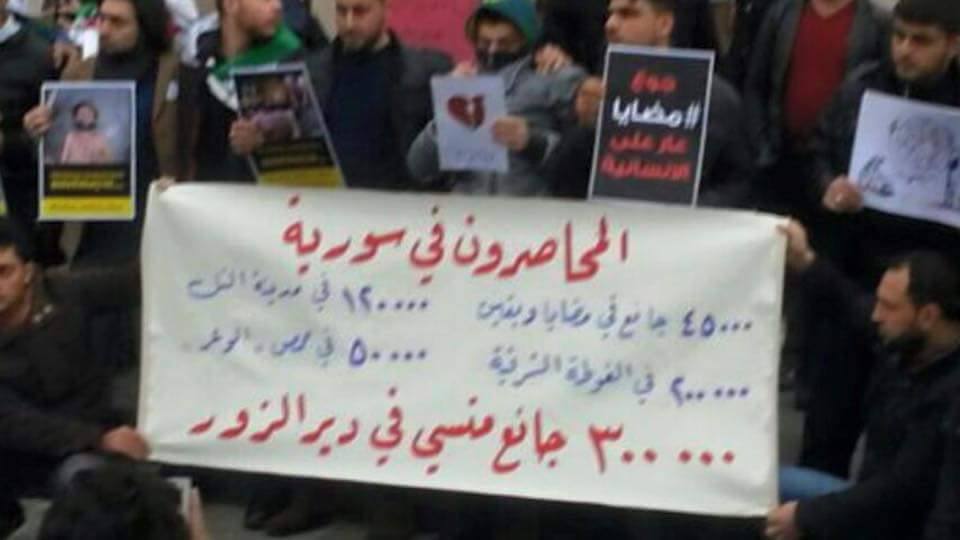 جوع
#مضايا
عار على
الانسانية
المحاصرون في سورية
٤٥٠٠٠ جائع في مضايا وبقين
١٢٠٠٠٠ في مدينة التل
٢٠٠٠٠٠ في الغوطة الشرقية
٥٠٠٠٠ في حمص - الوعر -
٣٠٠٠٠٠ جائع منسي في دير الزور